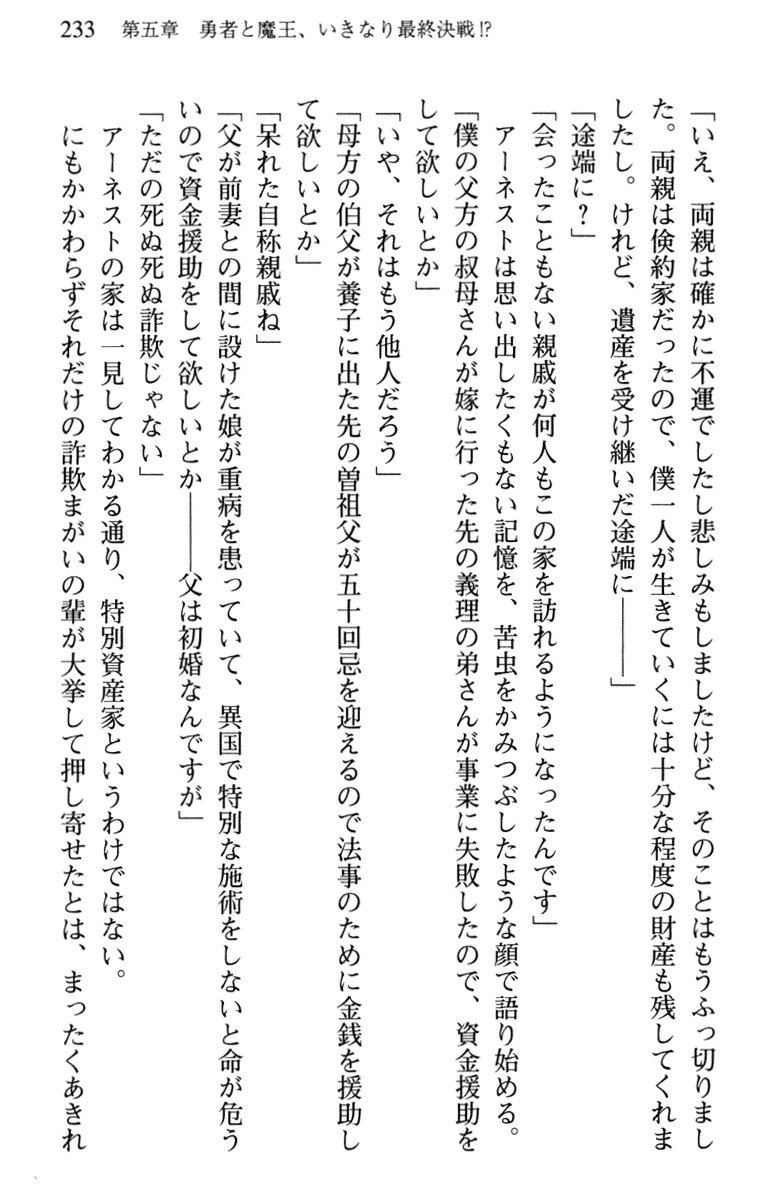 233　第五章　勇者と魔王、いきなり最終決戦!?
「いえ、両親は確かに不運でしたし悲しみもしましたけど、そのことはもうふっ切りまし
た。両親は倹約家だったので、僕一人が生きていくには十分な程度の財産も残してくれま
したし。けれど、遺産を受け継いだ途端に――」
「途端に？」
「会ったこともない親戚が何人もこの家を訪れるようになったんです」
アーネストは思い出したくもない記憶を、苦虫をかみつぶしたような顔で語り始める。
「僕の父方の叔母さんが嫁に行った先の義理の弟さんが事業に失敗したので、資金援助を
して欲しいとか」
「いや、それはもう他人だろう」
「母方の伯父が養子に出た先の曽祖父が五十回忌を迎えるので法事のために金銭を援助し
て欲しいとか」
「呆れた自称親戚ね」
「父が前妻との間に設けた娘が重病を患っていて、異国で特別な施術をしないと命が危う
いので資金援助をして欲しいとか――父は初婚なんですが」
「ただの死ぬ死ぬ詐欺じゃない」
アーネストの家は一見してわかる通り、特別資産家というわけではない。
にもかかわらずそれだけの詐欺まがいの輩が大挙して押し寄せたとは、まったくあきれ